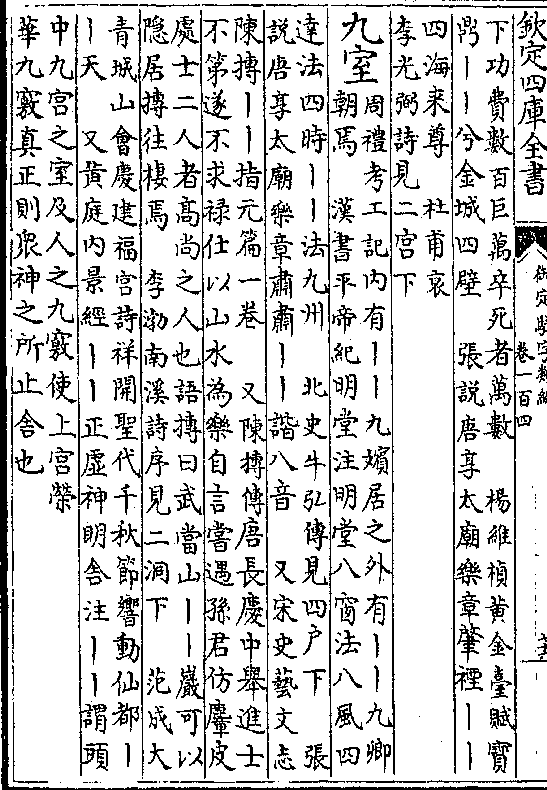 欽定四庫全書
下功費數百巨萬卒死者萬數　楊維楨黃金臺賦寶
鼎丨丨兮金城四壁　張說唐享太廟樂章肇禋丨丨
四海来尊　杜甫哀
李光弼詩見二宫下
九室
周禮考工記内有丨丨九嬪居之外有丨丨九卿
朝焉　漢書平帝紀明堂注明堂八窗法八風四
達法四時丨丨法九州　北史牛弘傳見四户下　張
説唐享太廟樂章肅肅丨丨諧八音　又宋史藝文志
陳摶丨丨指元篇一卷　又陳摶傳唐長慶中舉進士
不第遂不求禄仕以山水為樂自言嘗遇孫君仿麞皮
處士二人者高尚之人也語摶曰武當山丨丨巖可以
隠居摶往棲焉　李渤南溪詩序見二洞下　范成大
青城山會慶建福宫詩祥開聖代千秋節響動仙都丨
丨天　又黄庭内景經丨丨正虚神明舍注丨丨謂頭
中九宫之室及人之九竅使上宫榮
華九竅真正則衆神之所止舍也
卷一百四